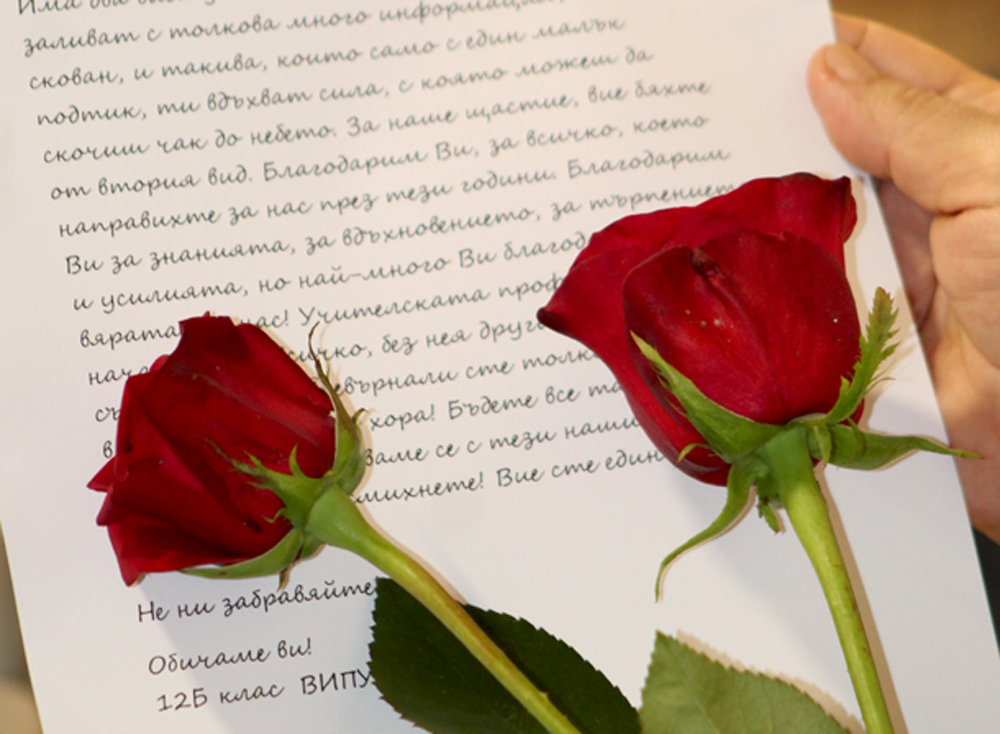 Има два вида
заливат с толкова много информация,
скован, и такива, които само с един малък
подтик, ти вдъхват сила, с която можеш да
скочиш чак до небето. За наше щастие, вие бяхте
от втория вид. Благодарим Ви, за всичко, което
направихте за нас през тези години. Благодарим
Ви за знанията, за вдъхновението, за търпението
и усилията, но най-много Ви благод
вярата нас! Учителската проф
нача сичко, без нея друг
съ евърнали сте толк
в хора! Бъдете все та
ваме се с тези наши
михнете! Вие сте един
Не ни забравяйте
Обичаме ви!
12Б клас ВИПУ